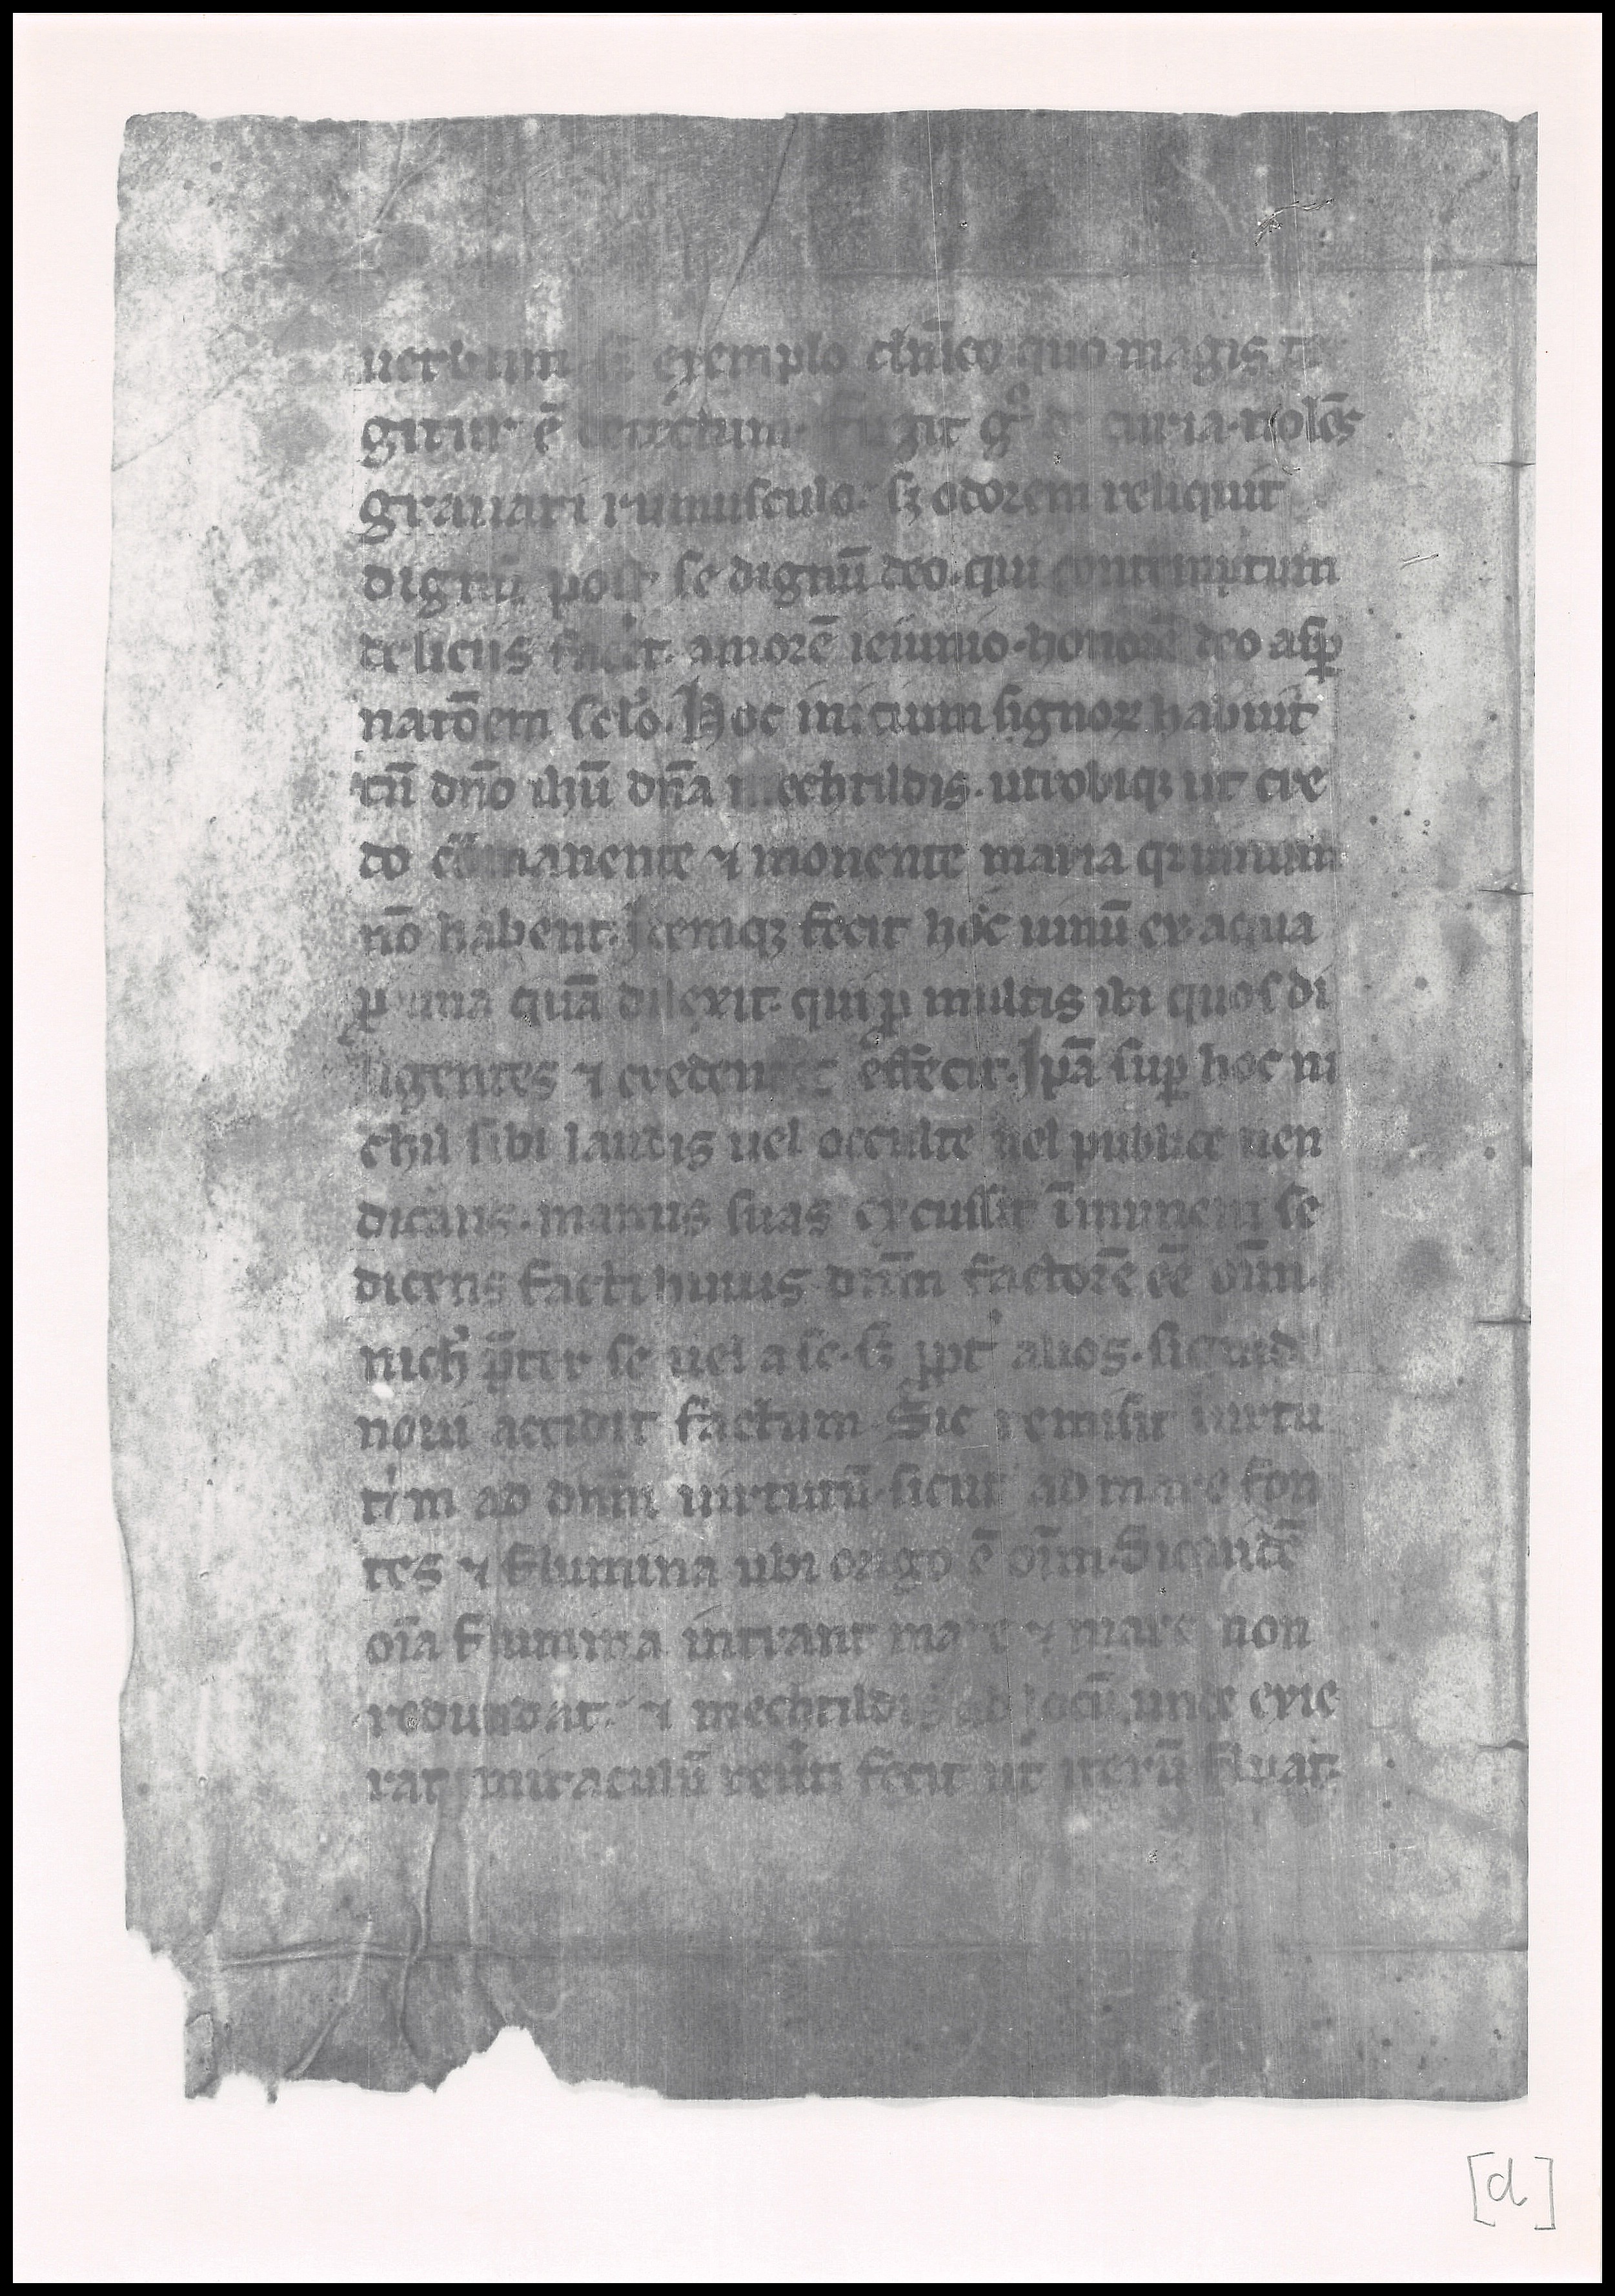 uerbum sz exemplo clinico quo magis te
gitur ē detectum. fugit gͦ de curia. nolēs
grauari rumusculo. sz odorem reliquit
dignū post se dignū deo. qui contemptum
deliciis facit. amorē ieiunio. honorē deo asp̱
natōem sclo. Hoc inicium signoꝝ habuit
cū dn̄o ihū dn̄a mechtildis. utrobiqꝫ ut cre
do cōmanente ⁊ monente maria qꝛ uinum
nō habent. Itemqꝫ fecit hoc uinū ex aqua
ꝑ una quā dilexit. qui ꝑ multis ibi quos di
ligentes ⁊ credentes effecit. Ipā suꝑ hoc ni
chil sibi laudis uel occulte uel publice uen
dicans. manus suas excussit īmunem se
dicens facti huius. dn̄m factorē eē oīm.
nich p̄ter se uel a se. sz ꝓpt alios. sicut id
noui accidit factum. Sic remisit uirtu
tem ad dn̄m uirtutū. sicut ad mare fon
tes ⁊ flumina ubi origo ē oīm. Siquidē
oīa flumina intrant mare ⁊ mare non
redundat. ⁊ mechtildis ad locū unde exie
rat miraculū reuti fecit ut iterū fluat.
[d]